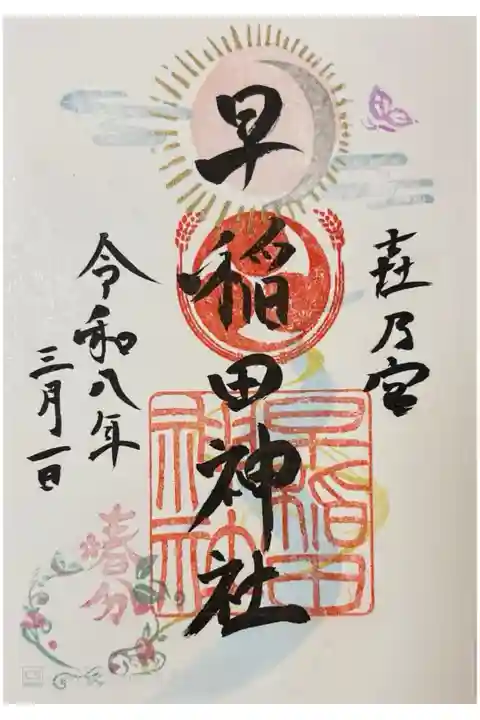 喜乃宮
早稲田神社
早稲田
神社
令和八年
三月一日
春分